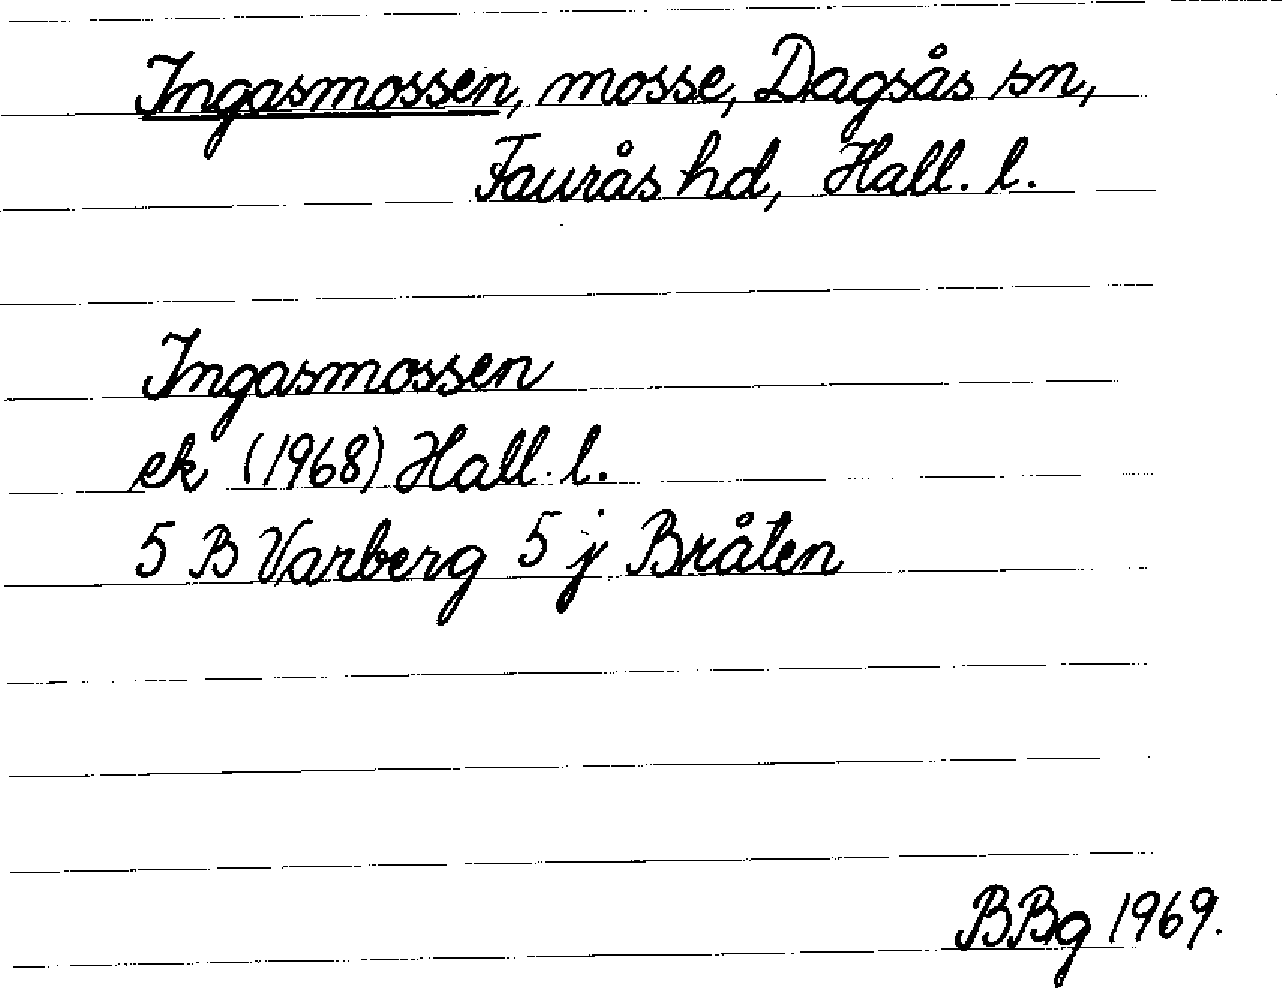 Ingasmossen, mosse, Dagsås sn,
Faurås hd, Hall. l.
Ingasmossen
ek (1968) Hall. l.
5 B Varberg 5 j Bråten
BBg 1969.